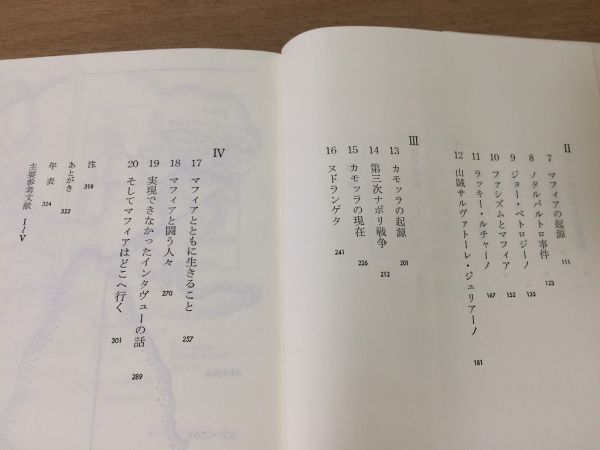 II
7 マフィアの起源 111
8 ノタルバルトロ事件 123
9 ジョー・ペトロジーノ 135
10 ファシズムとマフィア 152
11 ラッキー・ルチャーノ 167
12 山賊サルヴァトーレ・ジュリアーノ 181
III
13 カモッラの起源 201
14 第三次ナポリ戦争 212
15 カモッラの現在 226
16 ヌドランゲタ 241
IV
17 マフィアとともに生きること 257
18 マフィアと闘う人々 270
19 実現できなかったインタヴューの話 289
20 そしてマフィアはどこへ行く 301
注 318
あとがき 322
年表 324
主要参考文献 I〜V